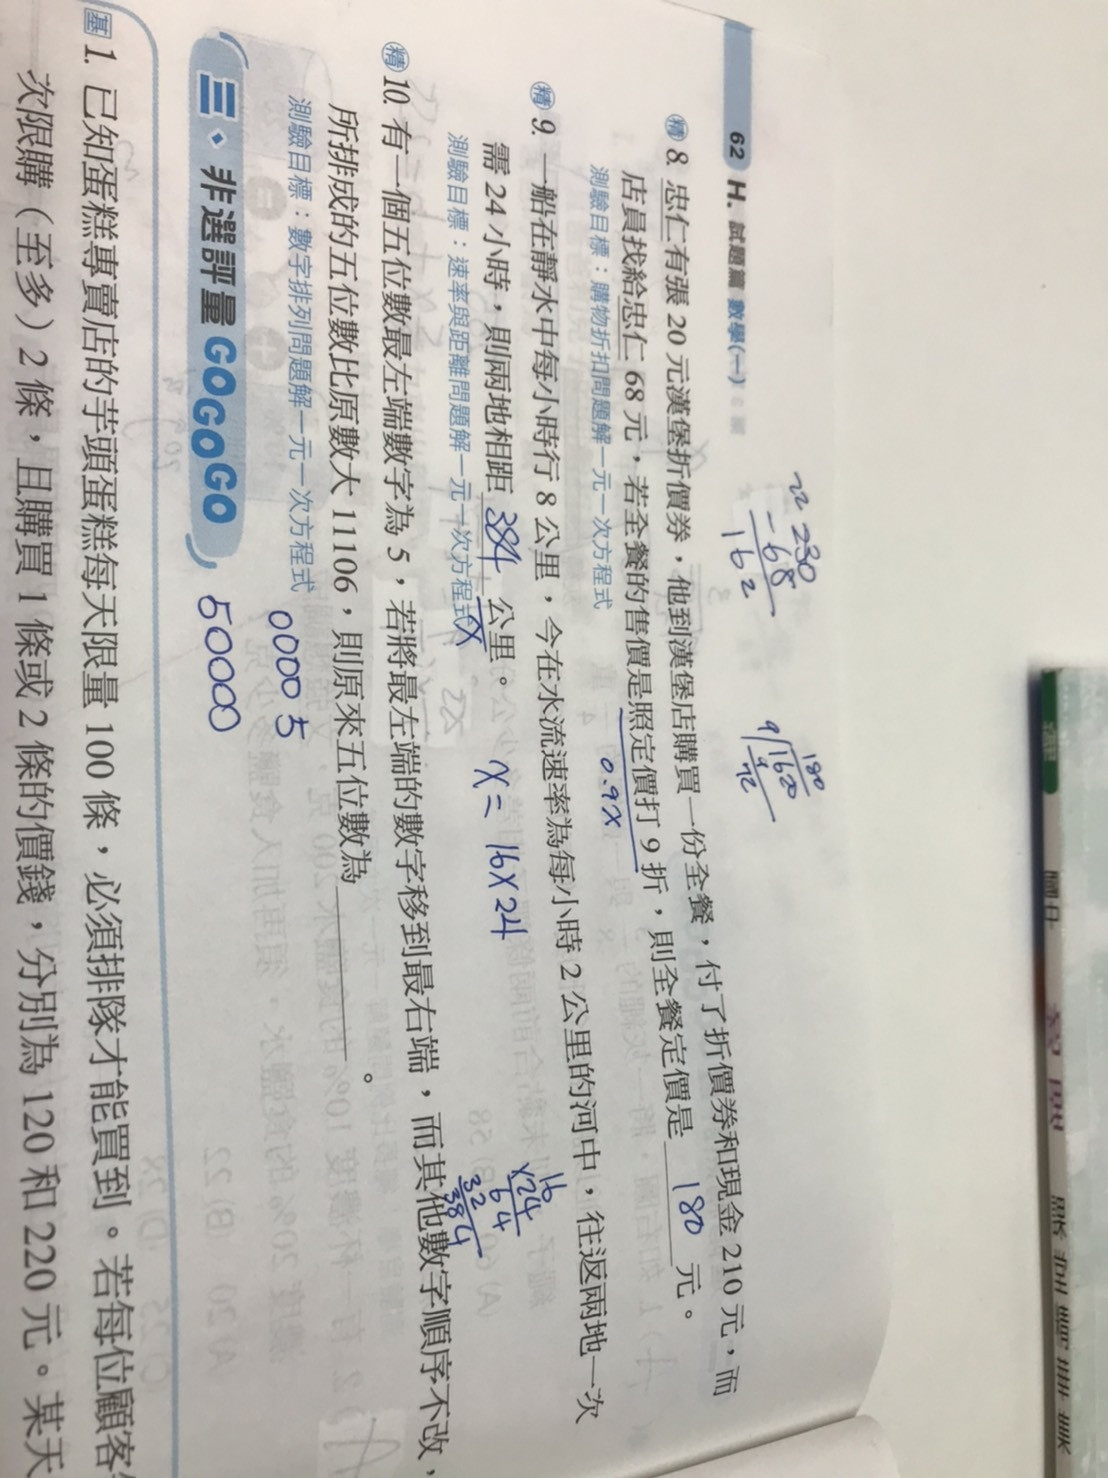 62 H. 試題篇 數學(一)
22 230
-68
162
180
9 1620
9
72
精 8. 忠仁有張 20 元漢堡折價券，他到漢堡店購買一份全餐，付了折價券和現金 210 元，而
店員找給忠仁 68 元，若全餐的售價是照定價打 9 折，則全餐定價是 180 元。
0.9x
測驗目標：購物折扣問題解一元一次方程式
精 9. 一船在靜水中每小時行 8 公里，今在水流速率為每小時 2 公里的河中，往返兩地一次
需 24 小時，則兩地相距 384 公里。
x = 16×24
16
×24
64
32
384
測驗目標：速率與距離問題解一元一次方程式
精 10. 有一個五位數最左端數字為 5，若將最左端的數字移到最右端，而其他數字順序不改，
所排成的五位數比原數大 11106，則原來五位數為。
測驗目標：數字排列問題解一元一次方程式
00005
50000
三、非選評量 GOGOGO
基 1. 已知蛋糕專賣店的芋頭蛋糕每天限量 100 條，必須排隊才能買到。若每位顧客
次限購（至多）2 條，且購買 1 條或 2 條的價錢，分別為 120 和 220 元。某天